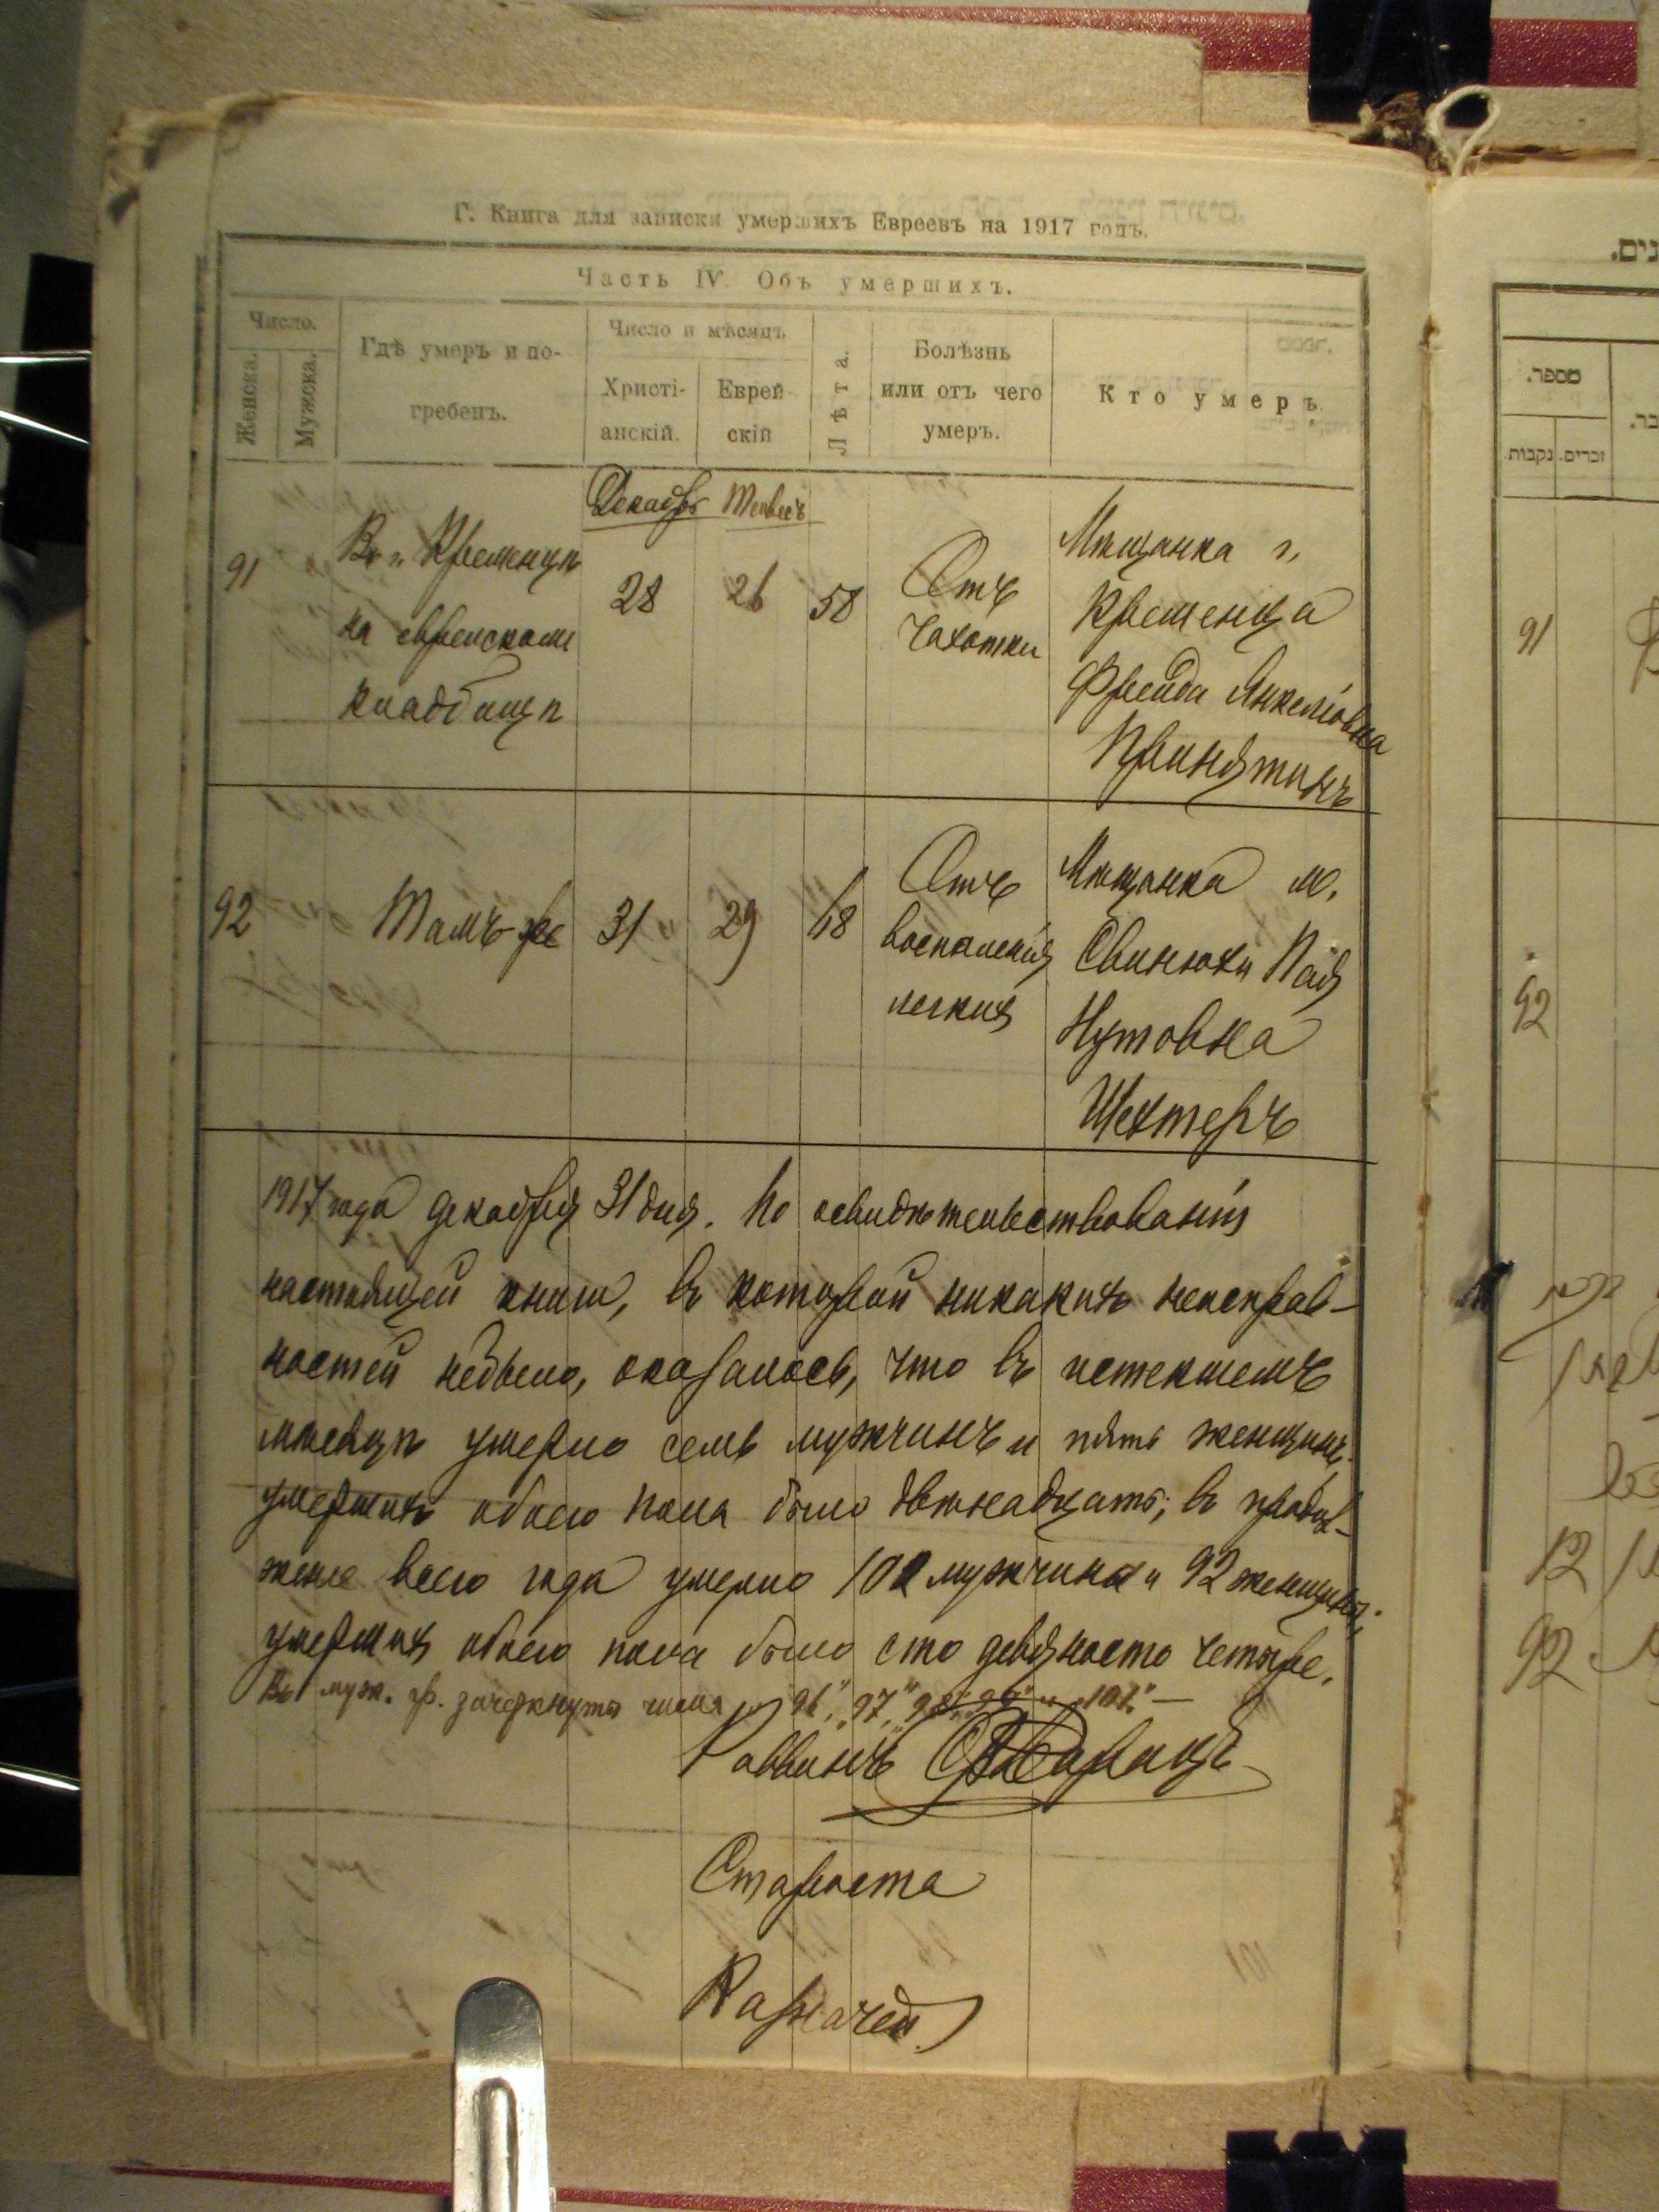 Г. Книга для записки умершихъ Евреевъ на 1917 годъ.
Часть IV Объ умершихъ.
Число.
Женска.
Мужска.
Гдѣ умеръ и по-
гребенъ.
Число и мѣсяцъ
Христі-
анскій.
Еврей
скій
Лѣта.
Болѣзнь
или отъ чего
умеръ.
Кто умеръ
Декабрь Тевесъ
91
Въ г. Кременцѣ
на еврейскомъ
кладбищѣ
28
26
58
Отъ
чахотки
Мѣщанка г.
Кременца
Фрейда Янкелевна
92
Тамъ-же
31
29
68
Отъ
воспаленія
легкихъ
Мѣщанка м.
Свинюхи Пая
Нутовна
Шехтеръ
1917 года декабря 31 дня. По освидѣтельствованіи
настоящей книги, въ которой никакихъ неисправ-
ностей небыло, оказалось, что въ истекшемъ
мѣсяцѣ умерло семь мужчинъ и пять женщинъ,
умершихъ обоего пола было двѣнадцать; въ продол-
женіе всего года умерло 102 мужчины и 92 женщины;
умершихъ обоего пола было сто девяносто четыре.
Въ муж. гр. зачеркнуто числа „96", „97", „98", „99" и „101." —
Раввинъ
Староста
Казначей
מספר.
נקבות.
זכרים.
91
92
12
92